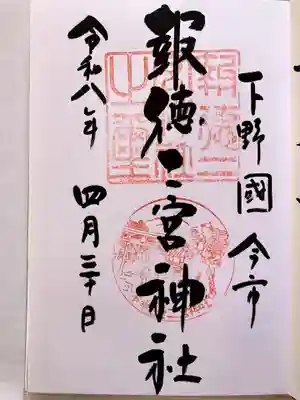 下野國 今市
報徳二宮神社
令和八年 四月三十日